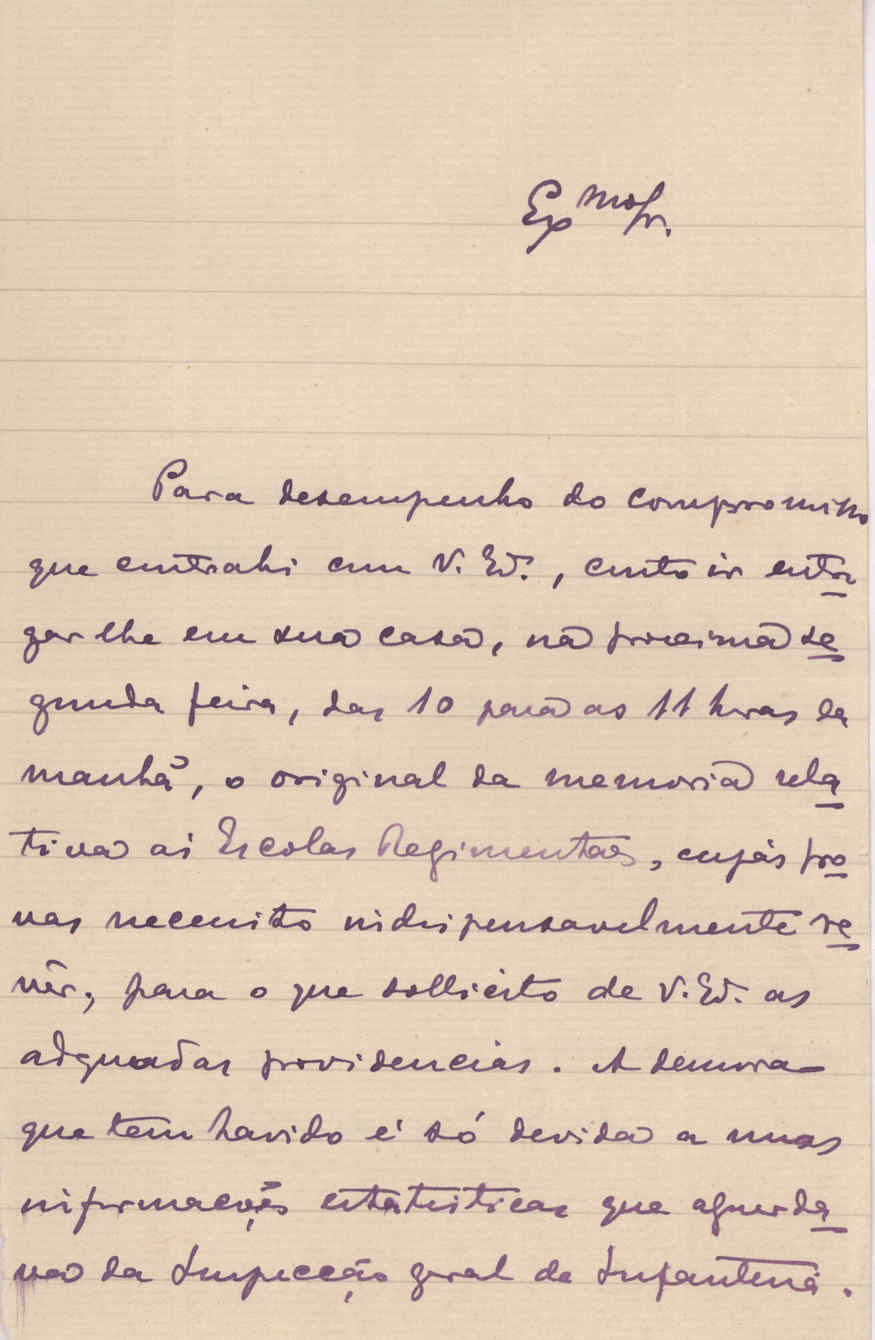 Exmo Sr.
Para desempenho do compromisso
que contrahi com V. Ex.ª, conto ir entre
gar lhe em sua casa, na proxima se
gunda feira, das 10 para as 11 horas da
manhã, o original da memoria rela
tiva ás Escolas Regimentaes, cujas pro
vas necessito indispensavelmente re
vêr, para o que sollicito de V. Ex.ª as
adquadas providencias. A demora
que tem havido é só devida a umas
informações estatisticas que aguarda
va da Inspecção geral de Infanteria.